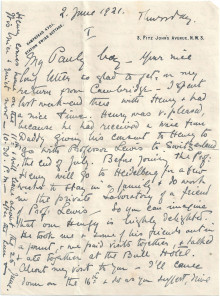 2. June 1921. Thursday.
HAMPSTEAD STN.
3, FITZ JOHN'S AVENUE, N.W.3.
I
My Pauly boy — Your nice
long letter so glad to get, on my
return from Cambridge — I spent
last week-end there with Henry & had
a nice time. Henry was so pleased,
because he had received a line from
Daddy giving his consent to Henry to
go with Professor Lewis to Switzerland
the end of July. Before joining the Prof.
Henry will go to Heidelberg for a few
weeks to stay in a family & do work
in the private Laboratory of a friend
of Prof. Lewis. So you can imagine
that our Henry is highly delighted.
He took me & some of his friends out in
a punt, & we paid visits together & talked
& ate together at the Bull Hotel.
visit to
down on the 16th & do as you suggest,